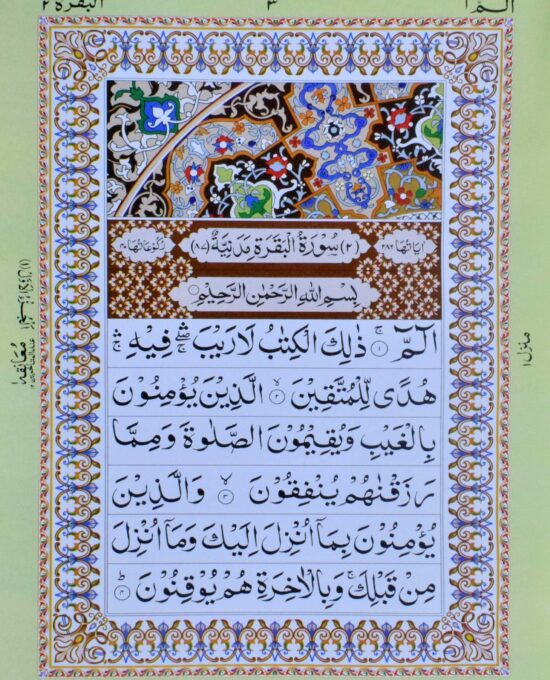 البقرة ٢
٣
الٓمّٓ ١
اٰيَاتُهَا ٢٨٦
(٢) سُوْرَةُ الْبَقَرَةِ مَدَنِيَّةٌ (٨٧)
رُكُوْعَاتُهَا ٤٠
بِسْمِ اللّٰهِ الرَّحْمٰنِ الرَّحِيْمِ
الٓمّٓ ۚ ﴿١﴾ ذٰلِكَ الْكِتٰبُ لَا رَيْبَ ۛۖ فِيْهِ ۛۚ
هُدًى لِّلْمُتَّقِيْنَ ۙ ﴿٢﴾ الَّذِيْنَ يُؤْمِنُوْنَ
بِالْغَيْبِ وَيُقِيْمُوْنَ الصَّلٰوةَ وَمِمَّا
رَزَقْنٰهُمْ يُنْفِقُوْنَ ۙ ﴿٣﴾ وَالَّذِيْنَ
يُؤْمِنُوْنَ بِمَاۤ اُنْزِلَ اِلَيْكَ وَمَاۤ اُنْزِلَ
مِنْ قَبْلِكَ ۚ وَبِالْاٰخِرَةِ هُمْ يُوْقِنُوْنَ ؕ ﴿٤﴾
منزل ١
معانقة ١